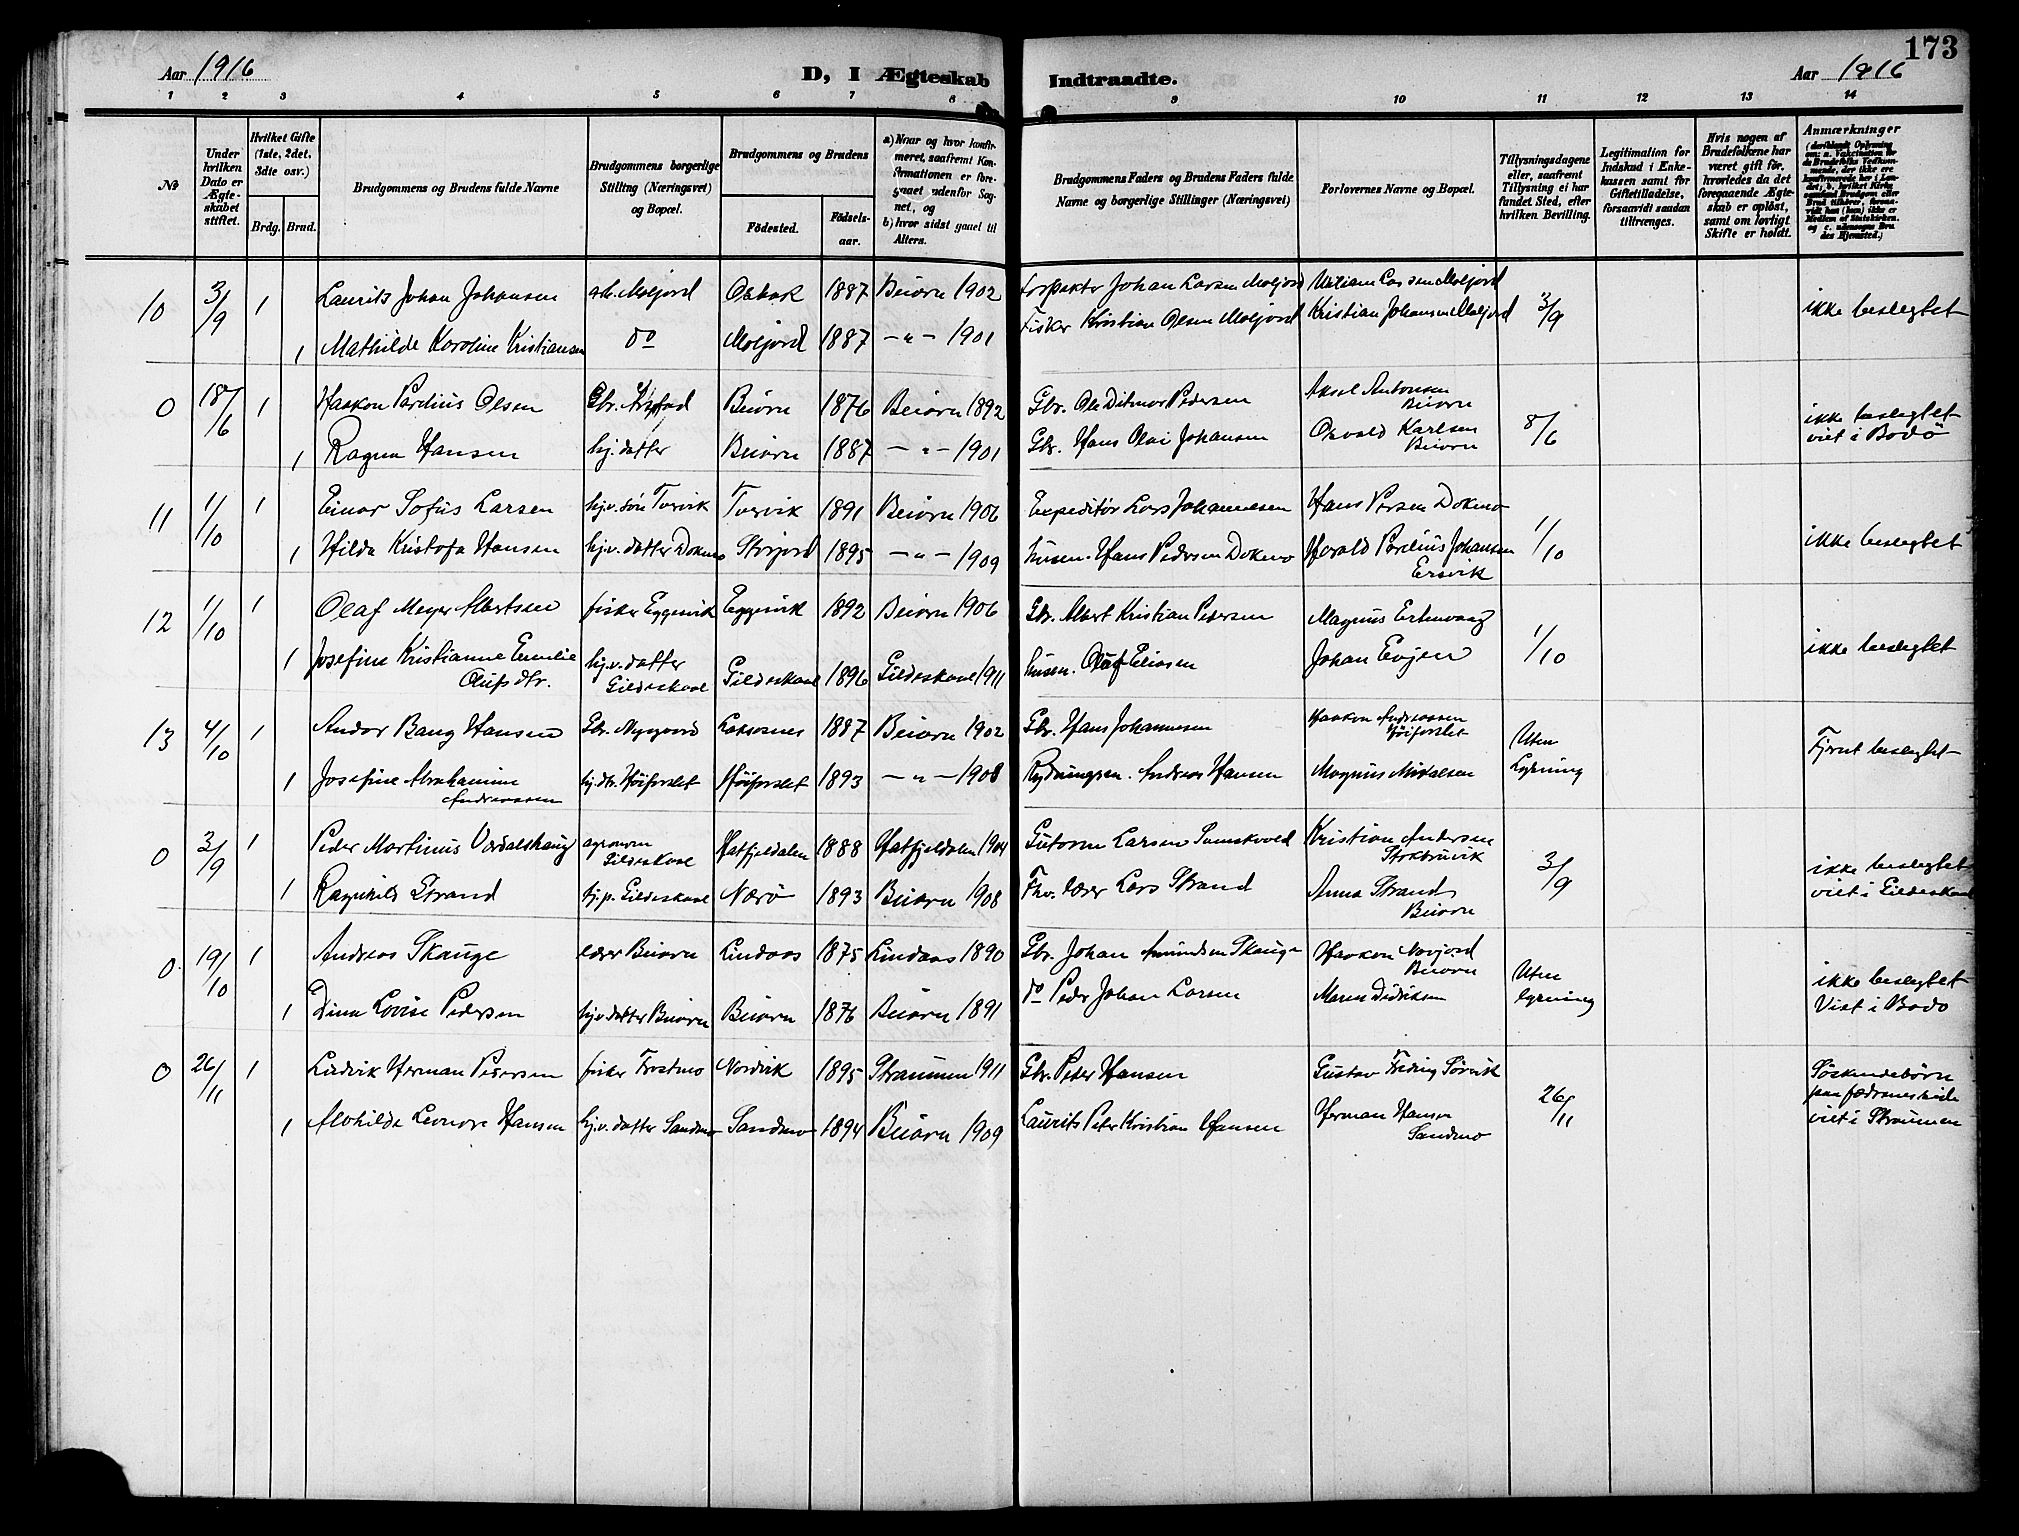 Aar 1916
D, I Ægteskab
Indtraadte.
173
Aar 1916
1 2 3 4 5 6 7 8 9 10 11 12 13 14
№
Under hvilken Dato er Ægteskabet stiftet.
Hvilket Gifte (1ste, 2det, 3die osv.)
Brdg. Brud.
Brudgommens og Brudens fulde Navne
Brudgommens borgerlige Stilling (Næringsvei) og Bopæl.
Brudgommens og Brudens
Fødested.
Fødselsaar.
a) Naar og hvor konfirmeret, saafremt Konfirmationen er foregaaet udenfor Sognet, og
b) hvor sidst gaaet til Alters.
Brudgommens Faders og Brudens Faders fulde Navne og borgerlige Stillinger (Næringsvei)
Forlovernes Navne og Bopæl.
Tillysningsdagene eller, saafremt Tillysning ei har fundet Sted, efter hvilken Bevilling.
Legitimation for Indskud i Enkekassen samt for Giftetilladelse, forsaavidt saadan tiltrænges.
Hvis nogen af Brudefolkene har været gift før, hvorledes da det foregaaende Ægteskab er opløst, samt om lovligt Skifte er holdt.
Anmærkninger
(deriblandt Oplysning om: a. Vaksination for de Brudefolks Vedkommende, der ikke ere konfirmerede her i Landet; b. hvilket Kirkesamfund Brudgom eller Brud tilhører, forsaavidt han (hun) ikke er Medlem af Statskirken, og c. udensogns Brudes Hjemsted.)
10 3/9 1 Laurits Johan Johansen arb. Moljord Osbak 1887 Beiarn 1902 Forpakter Johan Larsen Moljord William Larsen Moljord 3/9 ikke beslegtet
1 Mathilde Karoline Kristiansen do Moljord 1887 — " — 1901 Fisker Kristian Olsen Moljord Kristian Johansen Moljord
0 18/6 1 Haakon Parelius Olsen Gbr. Beiarn 1876 Beiarn 1892 Gbr. Ole Ditmar Pedersen Aksel Antonsen Beiarn 8/6 ikke beslegtet viet i Bodö
1 Ragna Hansen hj. datter Beiarn 1887 — " — 1901 Gbr. Hans Olai Johansen Osvald Karlsen Beiarn
11 1/10 1 Einar Sofus Larsen hjv. søn Tvervik Tvervik 1891 Beiarn 1906 Expeditör Lars Johannesen Hans Persen Dokmo 1/10 ikke beslegtet
1 Hilda Kristofa Hansen hjv. datter Dokmo Storjord 1895 — " — 1909 husm. Hans Pedersen Dokmo Harald Parelius Johansen Ersvik
12 1/10 1 Olaf Meyer Albertsen fisker Eggesvik Eggesvik 1892 Beiarn 1906 Gbr. Albert Kristian Pedersen Magnus Ertenvaag 1/10 ikke beslegtet
1 Josefine Kristianne Emelie Olufsdtr. hj. v. datter Gildeskaal Gildeskaal 1896 Gildeskaal 1911 husm. Oluf Eliasen Johan Evjen
13 4/10 1 Andor Bang Hansen Gbr. Nygaard Laksosnes 1887 Beiarn 1902 Gbr. Hans Johannesen Haakon Andreassen Höiforslet Uten Lysning Fjernt beslegtet
1 Josefine Abrahamine Andreassen hj. dtr. Höiforslet Höiforslet 1893 — " — 1908 Rydningsm. Andreas Hansen Magnus Mikalsen
0 3/9 1 Peder Martinus Værdalshaug agronom Gildeskaal Hatfjeldalen 1888 Hatfjeldalen 1904 Gutorm Larsen Kristian Andersen 3/9 ikke beslegtet viet i Gildeskaal
1 Ragnhild Strand hj. p. Gildeskaal Nærø 1893 Beiarn 1908 Fhv. lærer Lars Strand Anna Strand Beiarn
0. 19/10 1 Andreas Skauge lærer Beiarn Lindaas 1875 Lindaas 1890 Gbr. Johan Amundsen Skauge Haakon Navjord Beiarn Uten lysning ikke beslegtet Viet i Bodo
1 Dina Lovise Pedersen hjv. datter Beiarn Beiarn 1876 Beiarn 1891 do Peder Johan Larsen Maren Didriksen
0 26/11 1 Ludvik Herman Pedersen fisker Trostmo Nordvik 1895 Straumen 1911 Gbr. Peter Hansen Gustav Fredrig Sørvik 26/11 Söskendebörn paa fædrenes side viet i Straumen
1 Alvhilda Leonore Hansen hj. v. datter Sandmo Sandmo 1894 Beiarn 1909 Laurits Peter Kristian Hansen Herman Hansen Sandmo